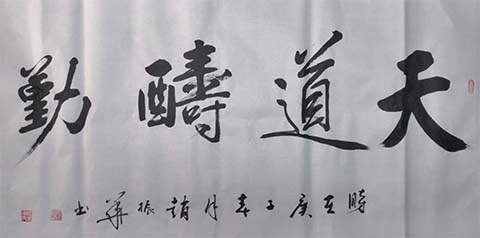 天道酬勤
時在庚子春月趙振華書